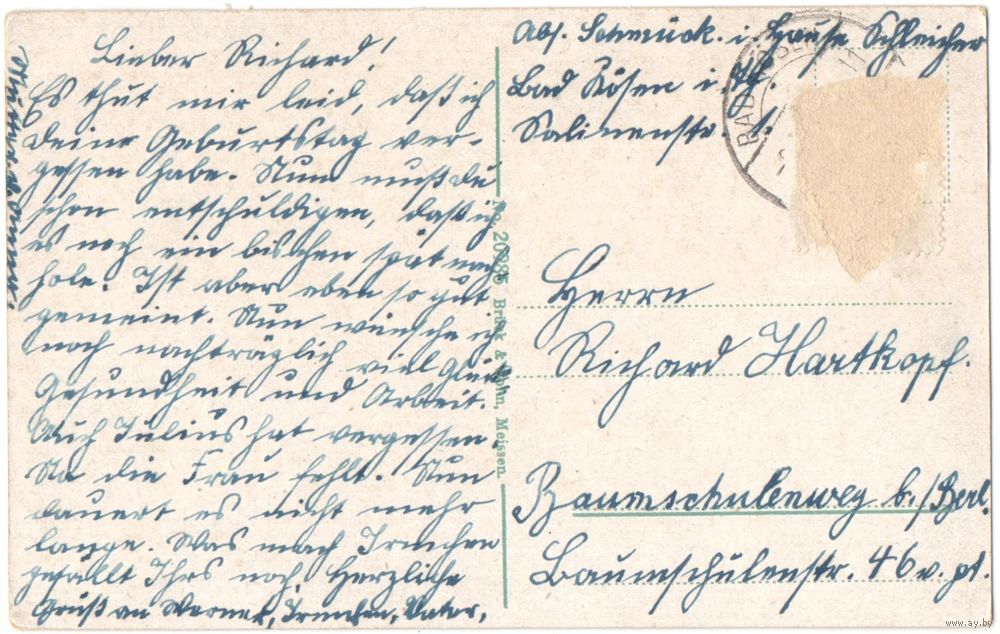 Lieber Richard!
Es thut mir leid, daß ich
deine Geburtstag ver-
gessen habe. Nun mußt du
schon entschuldigen, daß ich
es noch ein bischen spät nach
hole. Ist aber eben so gut
gemeint. Nun wünsche ich
noch nachträglich viel Glück
Gesundheit und Arbeit.
Auch Julius hat vergessen.
Na die Frau fehlt. Nun
dauert es nicht mehr
lange. Was mach Irmchen
gefällt Ihrs noch. Herzliche
Gruß an Werner, Irmchen, Vater,
Abs. Schmück. i. Hause Schleicher
Bad Kösen i. Th.
Salinenstr. 1.
BAD KÖSEN
No. 20985 Brück & Sohn, Meissen.
Herrn
Richard Hartkopf.
Baumschulenweg b./Berl.
Baumschulenstr. 46 v. pt.
www.ay.by